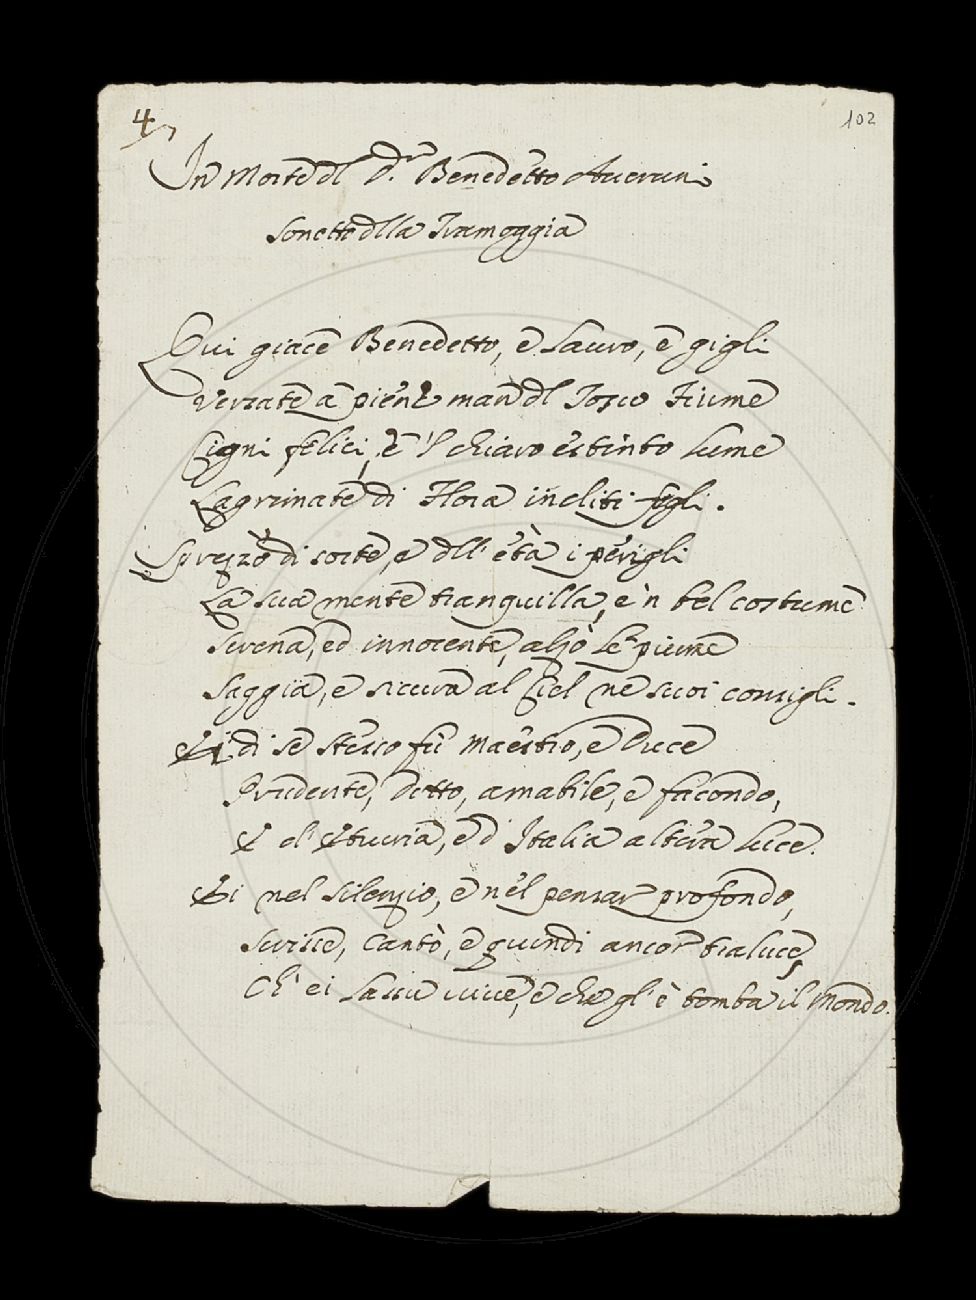 4
102
In Morte dl Dr. Benedetto Averani
Sonetto dlla Tramoggia
Qui giace Benedetto, e lauro, e gigli
Versate a piene man dl Tosco Fiume
Cigni felici, e 'l chiaro estinto lume
Lagrimate di Flora incliti figli.
Sprezzò di sorte, e dll' età i perigli
La sua mente tranquilla, e 'n bel costume
Serena, ed innocente, alzò le piume
Saggia, e sicura al Ciel ne suoi consigli.
Ei di se stesso fù Maestro, e Duce
Prudente, dotto, amabile, e facondo,
E d' Etruria, e d' Italia altera luce.
Ei nel silenzio, e nel pensar profondo,
Scrisse, Cantò, e quindi ancor traluce,
Ch' ei lassù vive, e che gl' è tomba il Mondo.